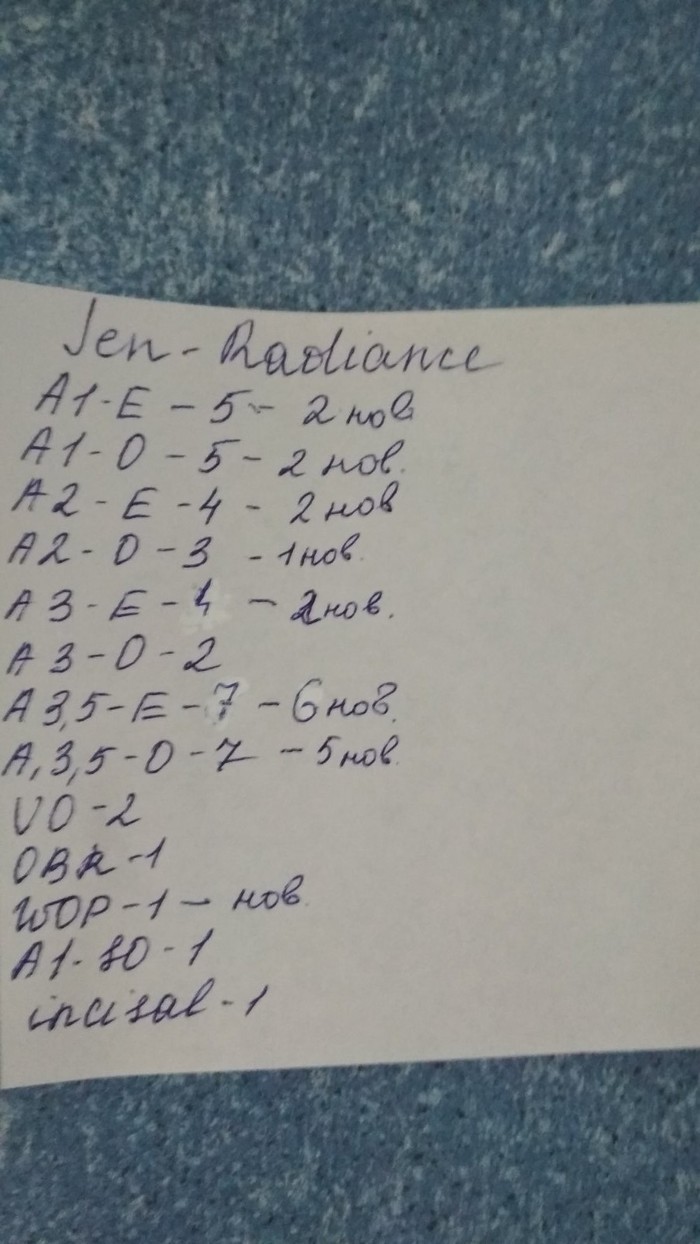 Jen-Radiance
A1-E-5-2нов
A1-O-5-2нов.
A2-E-4-2нов
A2-O-3-1нов.
A3-E-4-2нов.
A3-O-2
A3,5-E-7-6нов.
A,3,5-O-7-5нов.
UO-2
OBR-1
WOP-1-нов.
A1-SO-1
incisal-1